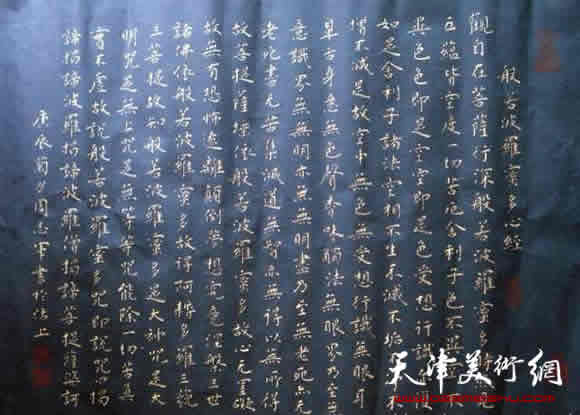 般若波羅蜜多心經
觀自在菩薩行深般若波羅蜜多
五蘊皆空度一切苦厄舍利子色不異
異色色即是空空即是色受想行識
如是舍利子諸法空相不生不滅不垢不
增不減是故空中無色無受想行識無眼耳
鼻舌身意無色聲香味觸法無眼界乃至無
意識界無無明亦無無明盡乃至無老死亦无
老死盡无苦集滅道無智亦無得以無所得
故菩提薩埵依般若波羅蜜多故心无罣礙
故無有恐怖遠離顛倒夢想究竟涅槃三世
諸佛依般若波羅蜜多故得阿耨多羅三藐
三菩提故知般若波羅蜜多是大神咒是大
明咒是無上咒是無等等咒能除一切苦真
實不虛故說般若波羅蜜多咒即說咒曰揭
諦揭諦波羅揭諦波羅僧揭諦菩提薩婆訶
庚辰菊夕周志軍書於津上
天津美術網
www.022meishu.com